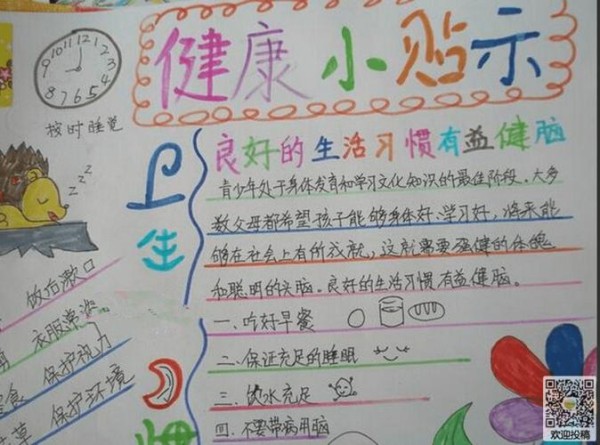 健康小贴示
10 11 12 1 2 3 4 5 6 7 8 9
按时睡觉
zzz
卫生
良好的生活习惯有益健脑
青少年处于身体发育和学习文化知识的最佳阶段。大多
数父母都希望孩子能够身体好、学习好，将来能
够在社会上有所成就，这就需要强健的体魄
和聪明的头脑。良好的生活习惯有益健脑。
一、吃好早餐
二、保证充足的睡眠
三、饮水充足
四、不要带病用脑
饭后漱口
衣服常洗
保护视力
保护环境
欢迎投稿